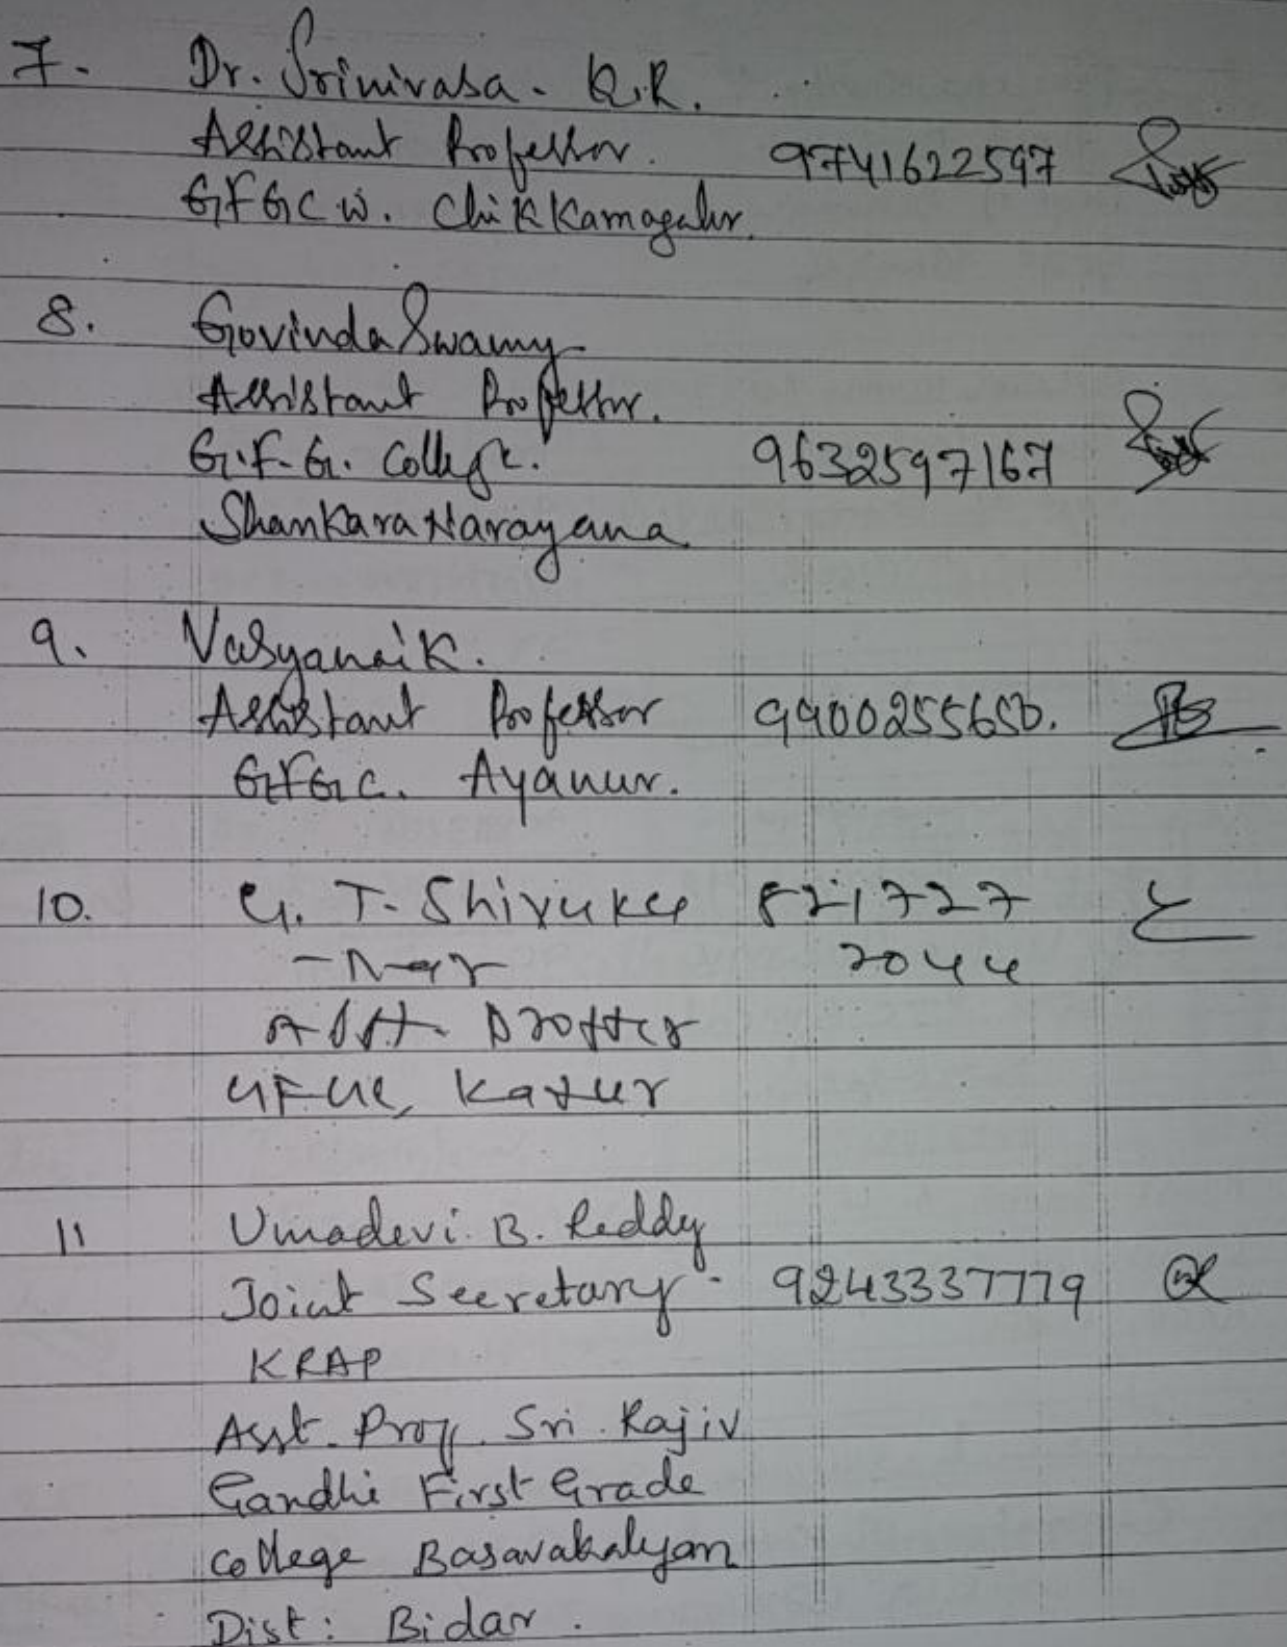 7. Dr. Srinivasa. K.R.
Assistant Professor. 9741622597
GFGCW. Chikkamagalur.
8. Govinda Swamy
Assistant Professor.
G.F.G. College. 9632597167
Shankara Narayana
9. Vasyanaik.
Assistant Professor 9900255650.
GFGC. Ayanur.
10. G. T. Shivuku 821727
-Mar 2044
Asst. Proffer
GFGC, Kadur
11 Umadevi. B. Reddy
Joint Secretary. 9243337779
KRAP
Asst. Prof. Sri. Rajiv
Gandhi First Grade
College Basavakalyan
Dist: Bidar.